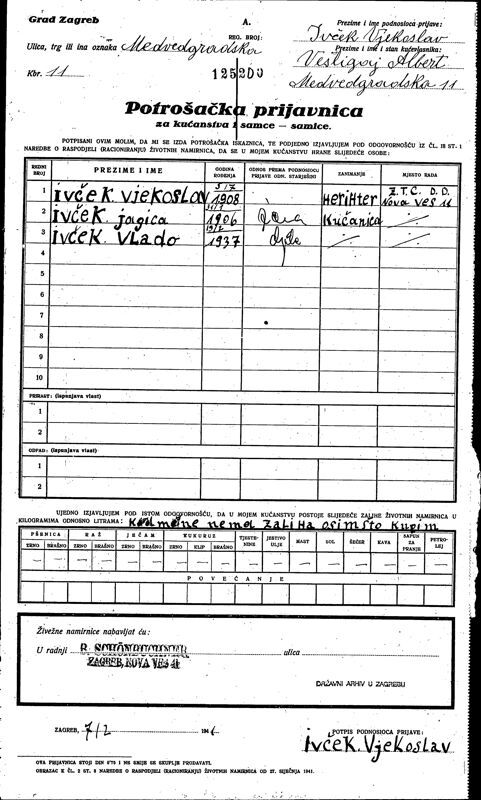 Grad Zagreb
A.
REG. BROJ:
125200
Prezime i ime podnosioca prijave:
Ivček Vjekoslav
Ulica, trg ili ina oznaka Medvedgradska
Prezime i ime i stan kućevlasnika:
Vesligoj Albert
Kbr. 11
Medvedgradska 11
Potrošačka prijavnica
za kućanstva i samce — samice.
POTPISANI OVIM MOLIM, DA MI SE IZDA POTROŠAČKA ISKAZNICA, TE PODJEDNO IZJAVLJUJEM POD ODGOVORNOŠĆU IZ ČL. 18 ST. 1
NAREDBE O RASPODJELI (RACIONIRANJU) ŽIVOTNIH NAMIRNICA, DA SE U MOJEM KUĆANSTVU HRANE SLIJEDEĆE OSOBE:
REDNI BROJ PREZIME I IME GODINA ROĐENJA ODNOS PREMA PODNOSIOCU PRIJAVE ODN. STARJEŠINI ZANIMANJE MJESTO RADA
1 Ivček Vjekoslav 5/7 1908 Herihter Z.T.C. D.D. Nova Ves 11
2 Ivček Jagica 1906 žena Kućanica
3 Ivček Vlado 1937 dijete
4
5
6
7
8
9
10
PRIRAST: (ispunjava vlast)
1
2
OTPAD: (ispunjava vlast)
1
2
UJEDNO IZJAVLJUJEM POD ISTOM ODGOVORNOŠĆU, DA U MOJEM KUĆANSTVU POSTOJE SLIJEDEĆE ZALIHE ŽIVOTNIH NAMIRNICA U
KILOGRAMIMA ODNOSNO LITRAMA: Kod mene nema zaliha osim što kupim
PŠENICA RAŽ JEČAM KUKURUZ TJESTENINE JESTIVO ULJE MAST SOL ŠEĆER KAVA SAPUN ZA PRANJE PETROLEJ
ZRNO BRAŠNO ZRNO BRAŠNO ZRNO BRAŠNO ZRNO KLIP BRAŠNO
— — — — — — — — — — — — — — — — —
POVEĆANJE
Živežne namirnice nabavljat ću:
U radnji B. SCHÖNBUCHNER ulica
ZAGREB, NOVA VES 4
DRŽAVNI ARHIV U ZAGREBU
ZAGREB, 7/2 194
POTPIS PODNOSIOCA PRIJAVE:
Ivček Vjekoslav
OVA PRIJAVNICA STOJI DIN 0'75 I NE SMIJE SE SKUPLJE PRODAVATI.
OBRAZAC K ČL. 2 ST. 2 NAREDBE O RASPODJELI (RACIONIRANJU) ŽIVOTNIH NAMIRNICA OD 27. SIJEČNJA 1941.